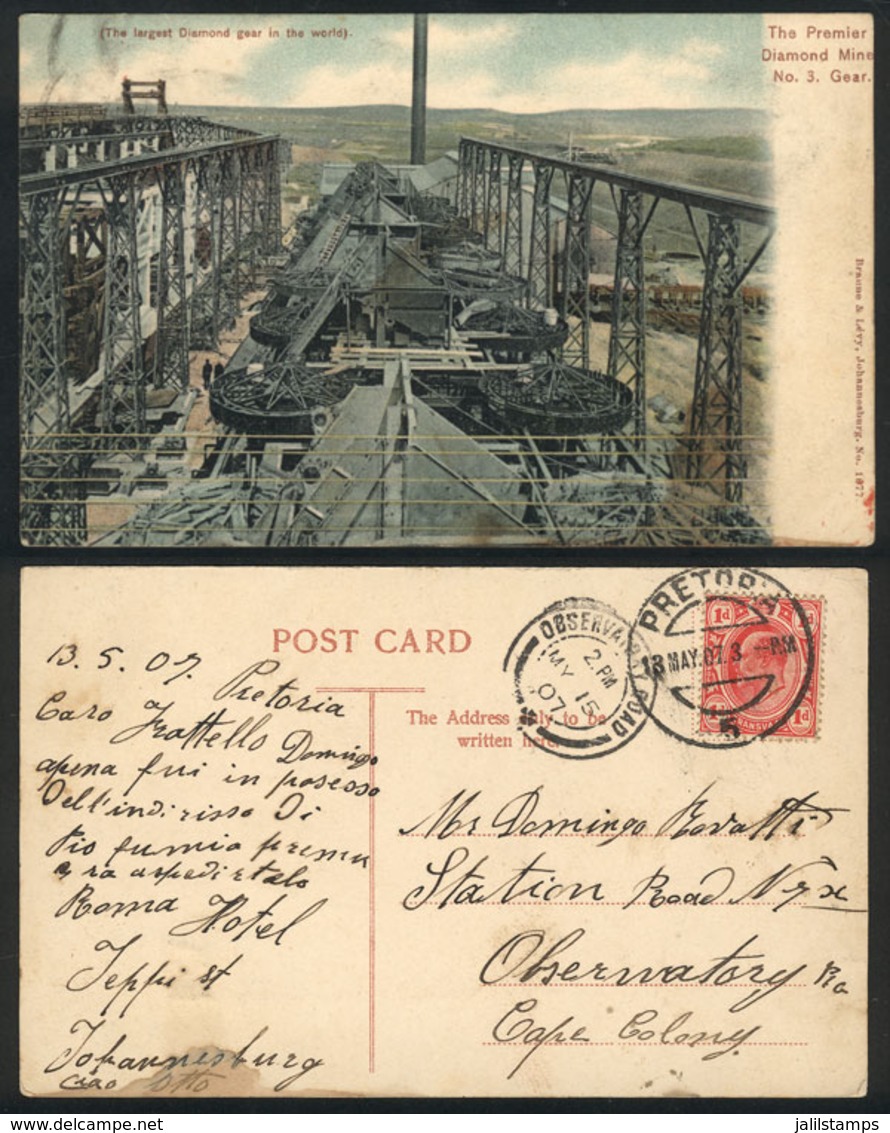 (The largest Diamond gear in the world).
The Premier
Diamond Mine
No. 3. Gear.
Braune & Lévy, Johannesburg, No. 1877.
POST CARD
The Address only to be
written here.
OBSERVATORY ROAD
2. PM
MY 15
07
PRETORIA
13 MAY.07.3 --P.M
5
1d
TRANSVAAL
1d
13. 5. 07. Pretoria
Caro Frattello Domingo
apena fui in posesso
Dell'indirisso Di
Pio fu mia premu
ra aspedirtalo
Roma Hotel
Jeppi st
Johannesburg
Ciao Otto
Mr Domingo Rovatti
Station Road
Observatory Ro
Cape Colony
jalilstamps